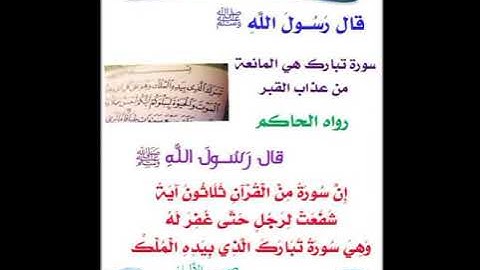 قَال رَسُولَ اللَّهِ ﷺ
سورة تبارك هي المانعة
من عذاب القبر
رواه الحاكم
قال رَسُولَ اللَّهِ ﷺ
إِنَّ سُورَةً مِنْ الْقُرْآنِ ثَلَاثُونَ آيَةً
شَفَعَتْ لِرَجُلٍ حَتَّى غُفِرَ لَهُ
وَهِيَ سُورَةُ تَبَارَكَ الَّذِي بِيَدِهِ الْمُلْكُ